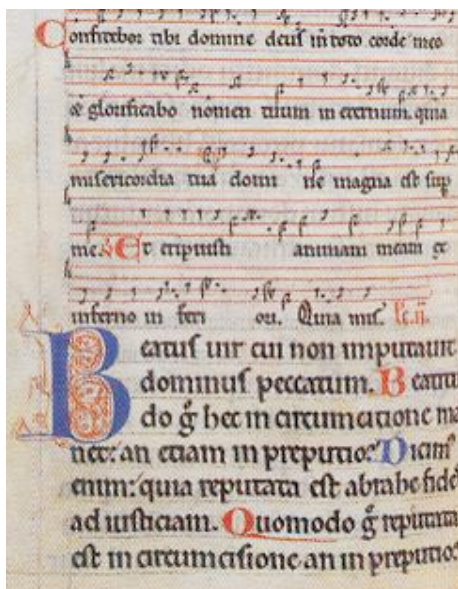 Confitebor tibi domine deuſ in toto corde meo
& glorificabo nomen tuum in eternum. quia
miſericordia tua domi ne magna eſt ſup
me. Et eripuiſti animam meam ex
inferno in feri ori. Quia miſ. Lc. ii.
Beatuſ uir cui non imputauit
dominuſ peccatum. Beatitu
do g̊ hec in circumcitione ma
net: an etiam in preputio? Dicim᾽
enim: quia reputata eſt abrahe fideſ
ad iuſticiam. Quomodo g̊ reputata
eſt in circumciſione an in preputio?